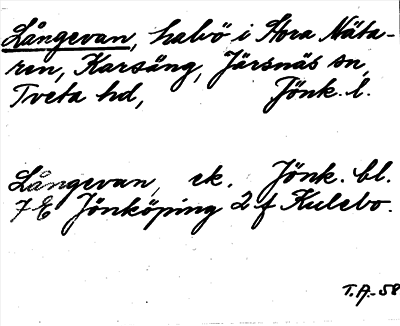 Långevan, halvö i Stora Näta-
ren, Karsäng, Järsnäs sn,
Tveta hd, Jönk. l.
Långevan, ek. Jönk. bl.
7 E Jönköping 2 f Kulebo.
T.A.-58